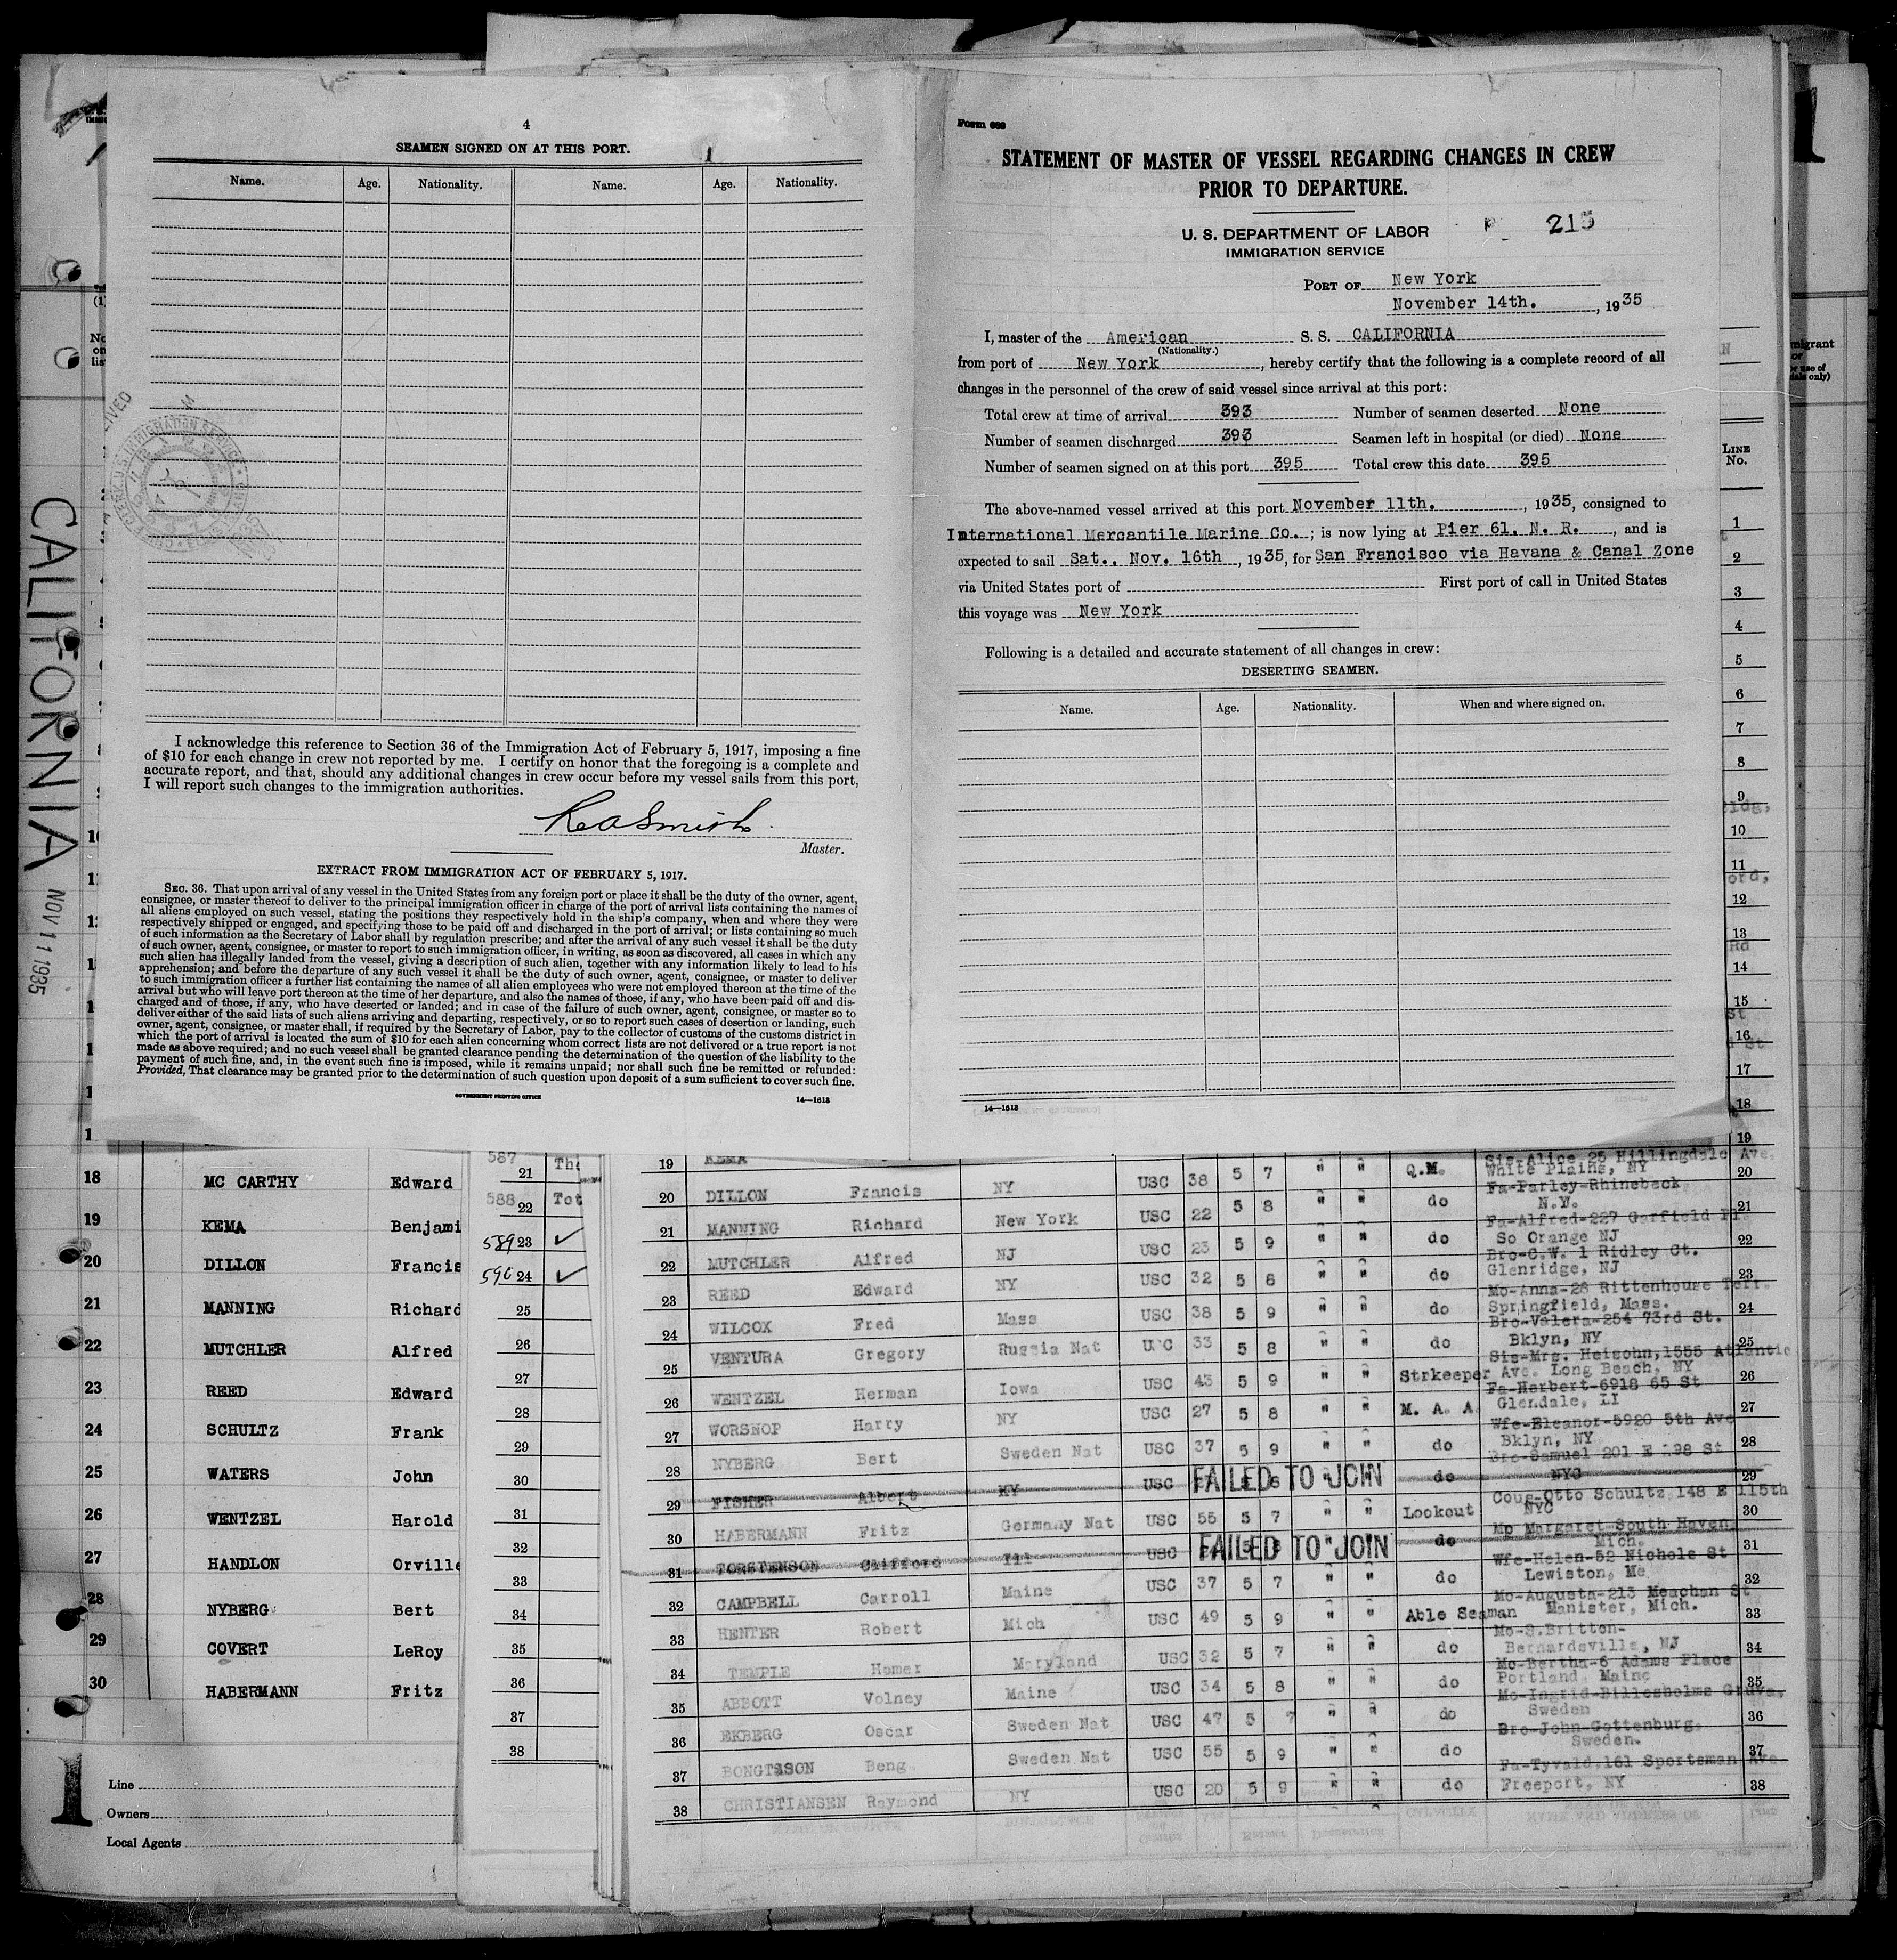 4
SEAMEN SIGNED ON AT THIS PORT.
Name. Age. Nationality. Name. Age. Nationality.
I acknowledge this reference to Section 36 of the Immigration Act of February 5, 1917, imposing a fine
of $10 for each change in crew not reported by me. I certify on honor that the foregoing is a complete and
accurate report, and that, should any additional changes in crew occur before my vessel sails from this port,
I will report such changes to the immigration authorities.
Master.
EXTRACT FROM IMMIGRATION ACT OF FEBRUARY 5, 1917.
SEC. 36. That upon arrival of any vessel in the United States from any foreign port or place it shall be the duty of the owner, agent,
consignee, or master thereof to deliver to the principal immigration officer in charge of the port of arrival lists containing the names of
all aliens employed on such vessel, stating the positions they respectively hold in the ship's company, when and where they were
respectively shipped or engaged, and specifying those to be paid off and discharged in the port of arrival; or lists containing so much
of such information as the Secretary of Labor shall by regulation prescribe; and after the arrival of any such vessel it shall be the duty
of such owner, agent, consignee, or master to report to such immigration officer, in writing, as soon as discovered, all cases in which any
such alien has illegally landed from the vessel, giving a description of such alien, together with any information likely to lead to his
apprehension; and before the departure of any such vessel it shall be the duty of such owner, agent, consignee, or master to deliver
to such immigration officer a further list containing the names of all alien employees who were not employed thereon at the time of the
arrival but who will leave port thereon at the time of her departure, and also the names of those, if any, who have been paid off and dis-
charged and of those, if any, who have deserted or landed; and in case of the failure of such owner, agent, consignee, or master so to
deliver either of the said lists of such aliens arriving and departing, respectively, or so to report such cases of desertion or landing, such
owner, agent, consignee, or master shall, if required by the Secretary of Labor, pay to the collector of customs of the customs district in
which the port of arrival is located the sum of $10 for each alien concerning whom correct lists are not delivered or a true report is not
made as above required; and no such vessel shall be granted clearance pending the determination of the question of the liability to the
payment of such fine, and, in the event such fine is imposed, while it remains unpaid; nor shall such fine be remitted or refunded:
Provided, That clearance may be granted prior to the determination of such question upon deposit of a sum sufficient to cover such fine.
GOVERNMENT PRINTING OFFICE 14—1613
Form 689
STATEMENT OF MASTER OF VESSEL REGARDING CHANGES IN CREW
PRIOR TO DEPARTURE.
U. S. DEPARTMENT OF LABOR
IMMIGRATION SERVICE
213
PORT OF New York
November 14th., 1935
I, master of the American S. S. CALIFORNIA
(Nationality.)
from port of New York, hereby certify that the following is a complete record of all
changes in the personnel of the crew of said vessel since arrival at this port:
Total crew at time of arrival 393 Number of seamen deserted None
Number of seamen discharged 393 Seamen left in hospital (or died) None
Number of seamen signed on at this port 395 Total crew this date 395
The above-named vessel arrived at this port November 11th., 1935, consigned to
International Mercantile Marine Co.; is now lying at Pier 61. N. R., and is
expected to sail Sat., Nov. 16th, 1935, for San Francisco via Havana & Canal Zone
via United States port of First port of call in United States
this voyage was New York
Following is a detailed and accurate statement of all changes in crew:
DESERTING SEAMEN.
Name. Age. Nationality. When and where signed on.
14—1613
CALIFORNIA NOV 11 1935
LINE
No.
1
2
3
4
5
6
7
8
9
10
11
12
13
14
15
16
17
18
19
18 MC CARTHY Edward
19 KEMA Benjami
20 DILLON Francis
21 MANNING Richard
22 MUTCHLER Alfred
23 REED Edward
24 SCHULTZ Frank
25 WATERS John
26 WENTZEL Harold
27 HANDLON Orville
28 NYBERG Bert
29 COVERT LeRoy
30 HABERMANN Fritz
Line
Owners
Local Agents
587 21 The
588 22 Tot
589 23 ✓
590 24 ✓
25
26
27
28
29
30
31
32
33
34
35
36
37
38
19 KEMA Q.M. Sis-Alice 25 Hillingdale Ave.
White Plains, NY 20
20 DILLON Francis NY USC 38 5 7 " " do Fa-Farley-Rhinebeck
N.Y. 21
21 MANNING Richard New York USC 22 5 8 " " do Fa-Alfred-227 Garfield Pl.
So Orange NJ 22
22 MUTCHLER Alfred NJ USC 23 5 9 " " do Bro-C.W. 1 Ridley Ct.
Glenridge, NJ 23
23 REED Edward NY USC 32 5 8 " " do Mo-Anna-28 Rittenhouse Terr.
Springfield, Mass. 24
24 WILCOX Fred Mass USC 38 5 9 " " do Bro-Valera-254 73rd St.
Bklyn, NY 25
25 VENTURA Gregory Russia Nat USC 33 5 8 " " Strkeeper Sis-Mrs. Heisohn, 1555 Atlantic
Ave. Long Beach, NY 26
26 WENTZEL Herman Iowa USC 43 5 9 " " M. A. A. Fa-Herbert-6918 65 St
Glendale, LI 27
27 WORSNOP Harry NY USC 27 5 8 " " do Wfe-Eleanor-5920 5th Ave
Bklyn, NY 28
28 NYBERG Bert Sweden Nat USC 37 5 9 Bro-Samuel 201 E 198 St
29 FISHER Albert NY USC FAILED TO JOIN do NYC 29
30 HABERMANN Fritz Germany Nat USC 55 5 7 " " Lookout Cous-Otto Schultz 148 E 115th
NYC 30
31 TORSTENSON Clifford Ill USC FAILED TO JOIN do Mo Margaret-South Haven
Mich. 31
32 CAMPBELL Carroll Maine USC 37 5 7 " " do Wfe-Helen-52 Nichols St
Lewiston, Me 32
33 HENTER Robert Mich USC 49 5 9 " " Able Seaman Mo-Augusta-213 Meachan St
Manister, Mich. 33
34 TEMPLE Homer Maryland USC 32 5 7 " " do Mo-S.Britton-
Bernardsville, NJ 34
35 ABBOTT Volney Maine USC 34 5 8 " " do Mo-Bertha-6 Adams Place
Portland, Maine 35
36 EKBERG Oscar Sweden Nat USC 47 5 7 " " do Mo-Ingrid-Billesholms Gruva,
Sweden 36
37 BONGTSSON Beng Sweden Nat USC 55 5 9 " " do Bro-John-Gottenburg,
Sweden. 37
38 CHRISTIANSEN Raymond NY USC 20 5 9 " " do Fa-Tyvald, 161 Sportsman Ave
Freeport, NY 38